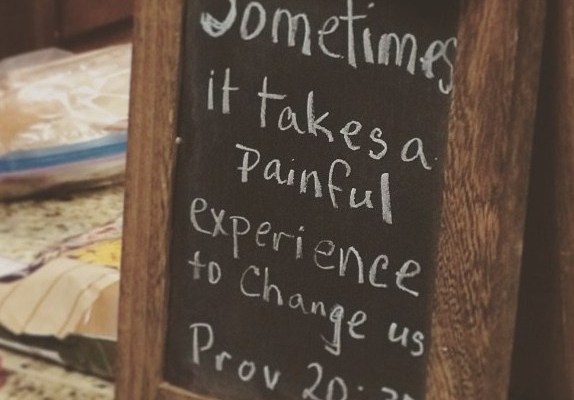 Sometimes
it takes a
Painful
experience
to Change us
Prov 20: